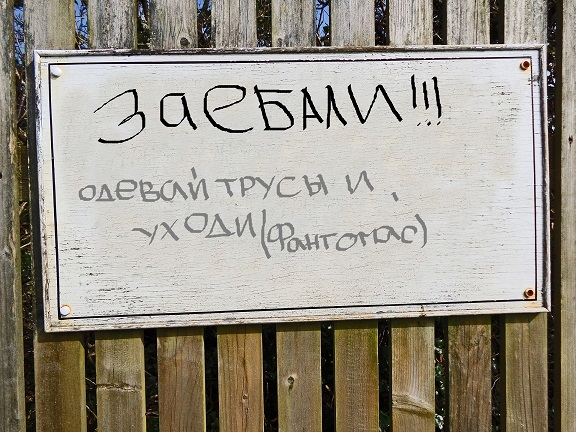 ЗАЕБАЛИ!!!
ОДЕВАЙ ТРУСЫ И
УХОДИ(ФАНТОМАС)